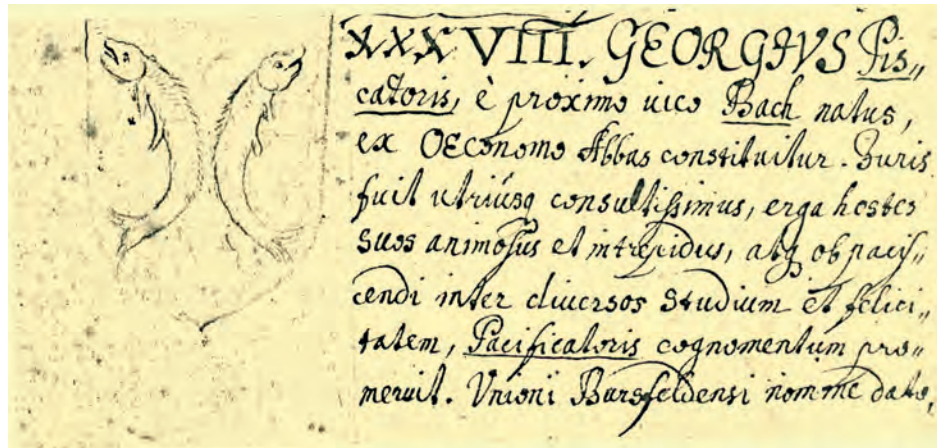 XXXVIII. GEORGIVS Pis„
catoris, è proximo uico Bach natus,
ex OEconomo Abbas constituitur. Iuris
fuit utriúsq consultissimus, erga hostes
suos animosus et intrepidus, atq ob paci„
cendi inter diuersos studium et felici„
tatem, Pacificatoris cognomentum pro„
meruit. Vnioni Bursfeldensi nomine dato,